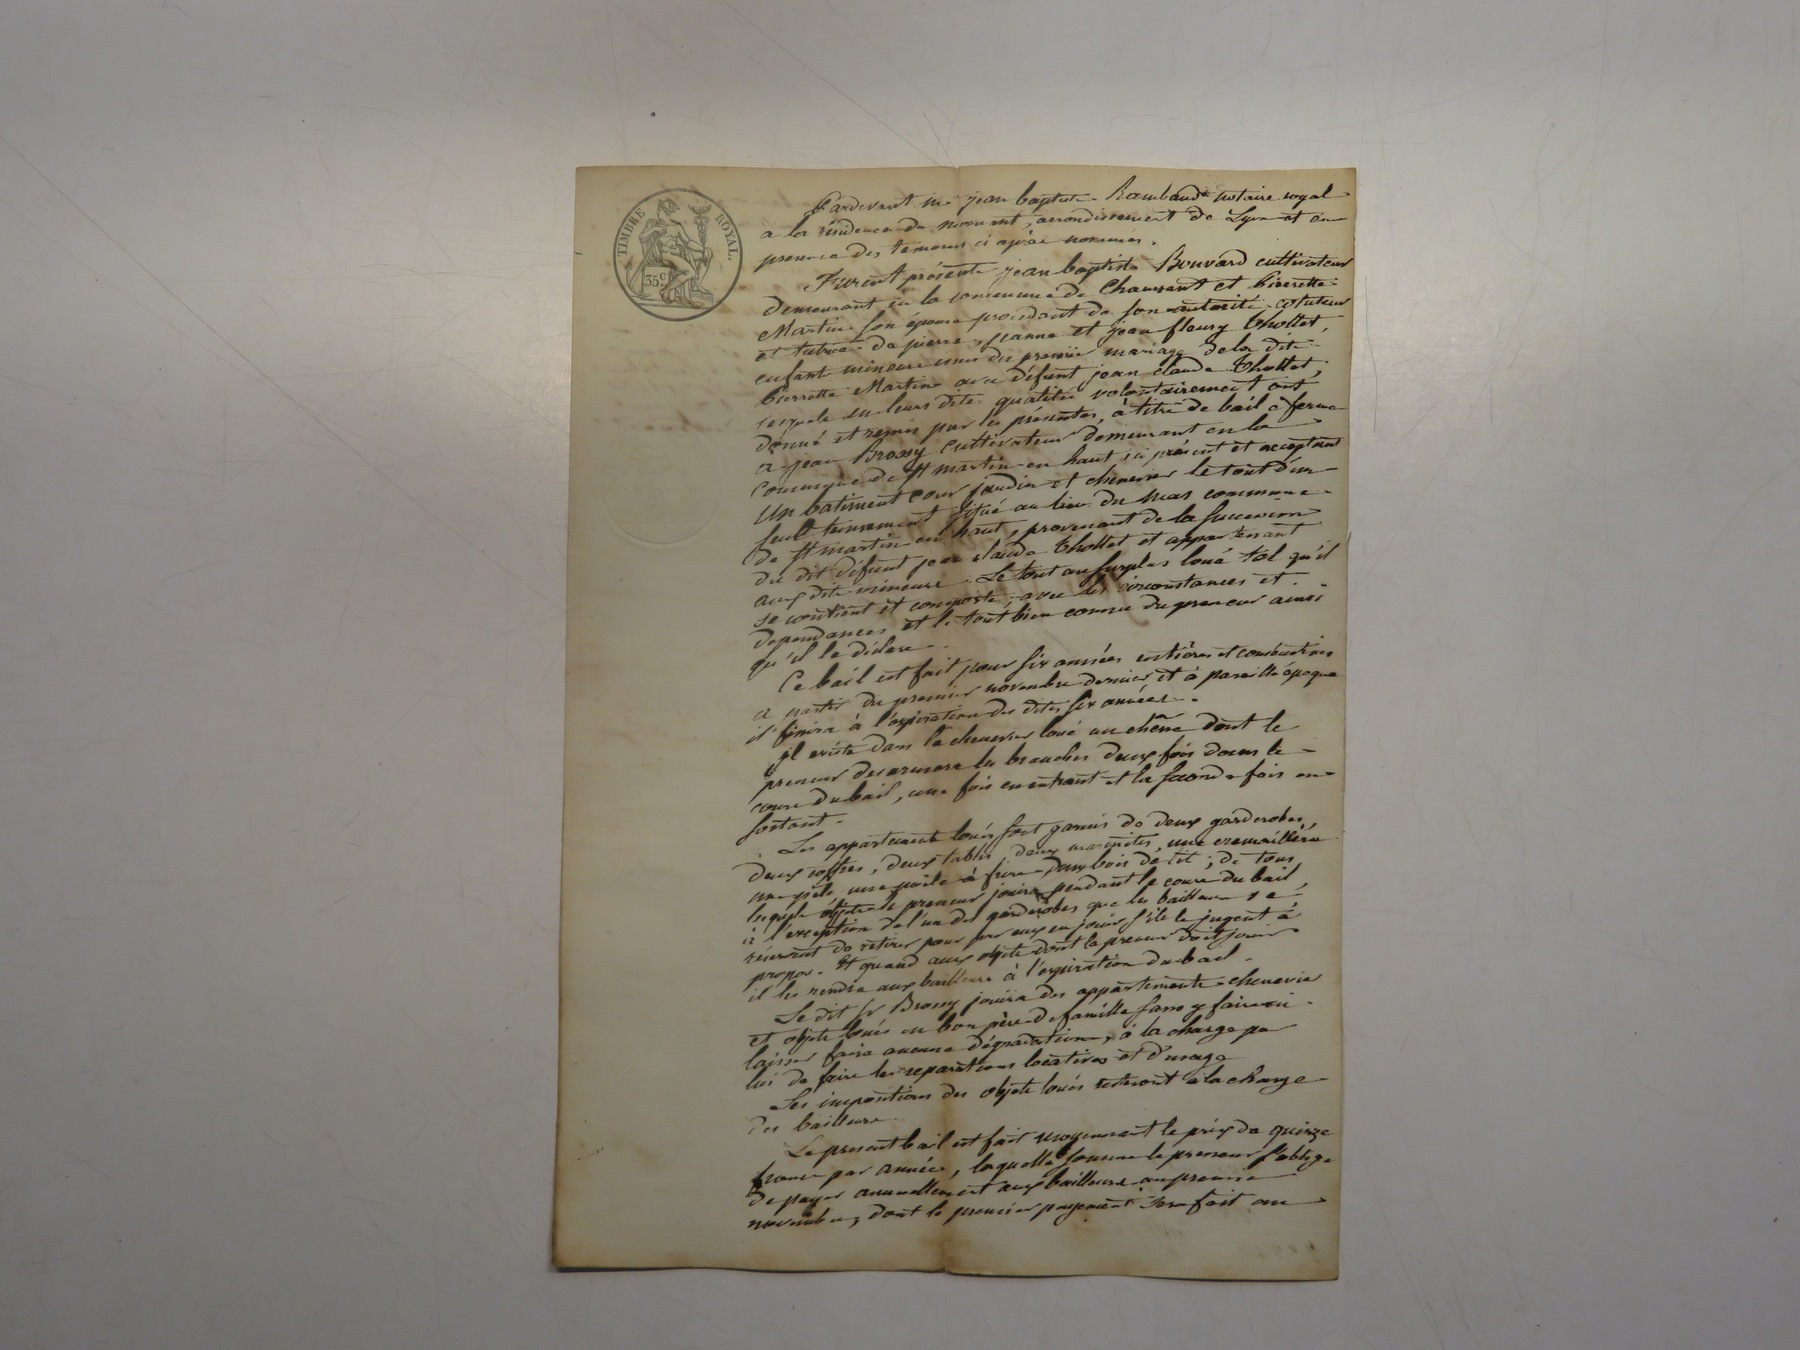 TIMBRE ROYAL.
35 c
Pardevant me jean baptiste Rambaud notaire royal
a la résidence de mornant, arrondissement de Lyon et en
presence des temoins ci après nommés.
Furent présents jean baptiste Bouvard cultivateur
demeurant en la commune de Chaussant et Pierrette
Martin son épouse procedant de son autorité, cotuteur
et tutrice de pierre, jeanne et jean fleury Thollet,
enfants mineurs issus du premier mariage de la dite
Pierrette Martin avec défunt jean claude Thollet,
lesquels en leurs dites qualités volontairement ont
donné et remis par les présentes, à titre de bail à ferme
à jean Brossy cultivateur demeurant en la
commune de St martin en haut ici présent et acceptant
Un batiment cour jardin et chenevier le tout d'un
seul tennement situé au lieu du mas commune
de St martin en haut, provenant de la succession
du dit défunt jean claude Thollet et appartenant
aux dits mineurs. Le tout au surplus loué tel qu'il
se contient et comporte, avec ses circonstances et
dependances et le tout bien connu du preneur ainsi
qu'il le déclare.
Ce bail est fait pour six années entières et consécutives
a partir du premier novembre dernier et à pareille époque
il finira à l'expiration des dites six années.
Il existe dans le chenevier loué un chêne dont le
preneur les branches deux fois dans le
cours du bail, une fois en entrant et la seconde fois en
sortant.
Les appartements loués sont garnis de deux garderobes,
deux coffres, deux tables, deux marmites, une cremaillère
une une poële à frire, deux bois de lit; de tous
lesquels objets le preneur jouira pendant le cours du bail,
à l'exception de l'un des garderobes que les bailleurs se
réservent de retirer pour par eux en jouir s'ils le jugent à
propos. Et quand aux objets dont le preneur doit jouir
il les rendra aux bailleurs à l'expiration du bail.
Le dit Sr Brossy jouira des appartements chenevier
et objets loués en bon père de famille sans y faire ni
laisser faire aucune dégradation, à la charge par
lui de faire les reparations locatives et d'usage
Les impositions des objets loués resteront à la charge
des bailleurs.
Le present bail est fait moyennant le prix de quinze
francs par année, laquelle somme le preneur s'oblige
de payer annuellement aux bailleurs au premier
novembre, dont le premier payement sera fait au